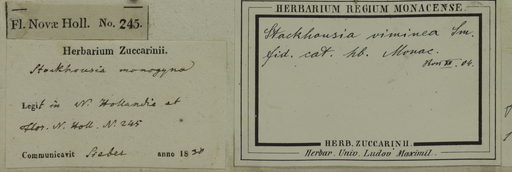 Fl. Novæ Holl. No. 245.
Herbarium Zuccarinii.
Stockhousia monogyna
Legit in N. Hollandia et
Flor. N. Holl. N. 245
Communicavit Sieber anno 18
HERBARIUM REGIUM MONACENSE.
Stackhousia viminea Sm.
fid. cat. hb. Monac.
06.
HERB. ZUCCARINII.
Herbar. Univ. Ludov. Maximil.